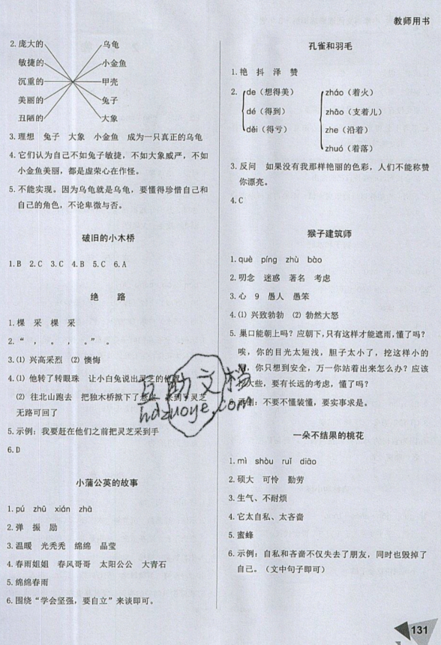 教师用书
2. 庞大的 乌龟
敏捷的 小金鱼
沉重的 甲壳
美丽的 兔子
丑陋的 大象
3. 理想 兔子 大象 小金鱼 成为一只真正的乌龟
4. 它们认为自己不如兔子敏捷，不如大象威严，不如
小金鱼美丽，都是虚荣心在作怪。
5. 不能实现。因为乌龟就是乌龟，要懂得珍惜自己和
自己的角色，不论卑微与否。
破旧的小木桥
1. B 2. C 3. C 4. B 5. C 6. A
绝 路
1. 棵 采 棵 采
2. “ ， 。 ，。”。
3. ⑴ 兴高采烈 ⑵ 懊悔
4. ⑴ 他转了转眼珠 让小白兔说出灵芝的
⑵ 往北山跑去 把独木桥掀下了 灵芝
无路可回了
5. 示例：我要赶在他们之前把灵芝采到手
6. D
小蒲公英的故事
1. pú zhǔ xián zhā
2. 弹 振 励
3. 温暖 光秃秃 绵绵 晶莹
4. 春雨姐姐 春风哥哥 太阳公公 大青石
5. 绵绵春雨
6. 围绕“学会坚强，要自立”来谈即可。
孔雀和羽毛
1. 艳 抖 泽 赞
2. de（想得美） zháo（着火）
dé（得到） zhāo（支着儿）
děi（得亏） zhe（沿着）
zhuó（着落）
3. 反问 如果没有我那样艳丽的色彩，人们不能称赞
你漂亮。
4. C
猴子建筑师
1. què píng zhù bào
2. 明念 迷惑 著名 考虑
3. 心 9 愚人 愚笨
4. ⑴ 兴致勃勃 ⑵ 勃然大怒
5. 巢口能朝上吗？应朝下，只有这样才能遮雨，懂了吗？
唉，你的目光太短浅，胆子太小了，挖这样小的
你只想到安全，万一你站着出来怎么办？应该
大些，要有长远的考虑，懂了吗？
：不要不懂装懂，要实事求是。
一朵不结果的桃花
1. mì shòu ruǐ diāo
2. 硕大 可怜 勤劳
3. 生气、不耐烦
4. 它太自私、太吝啬
5. 蜜蜂
6. 示例：自私和吝啬不仅失去了朋友，同时也毁掉了
自己。（文中句子即可）
互助文档
hdzuoye.com
131